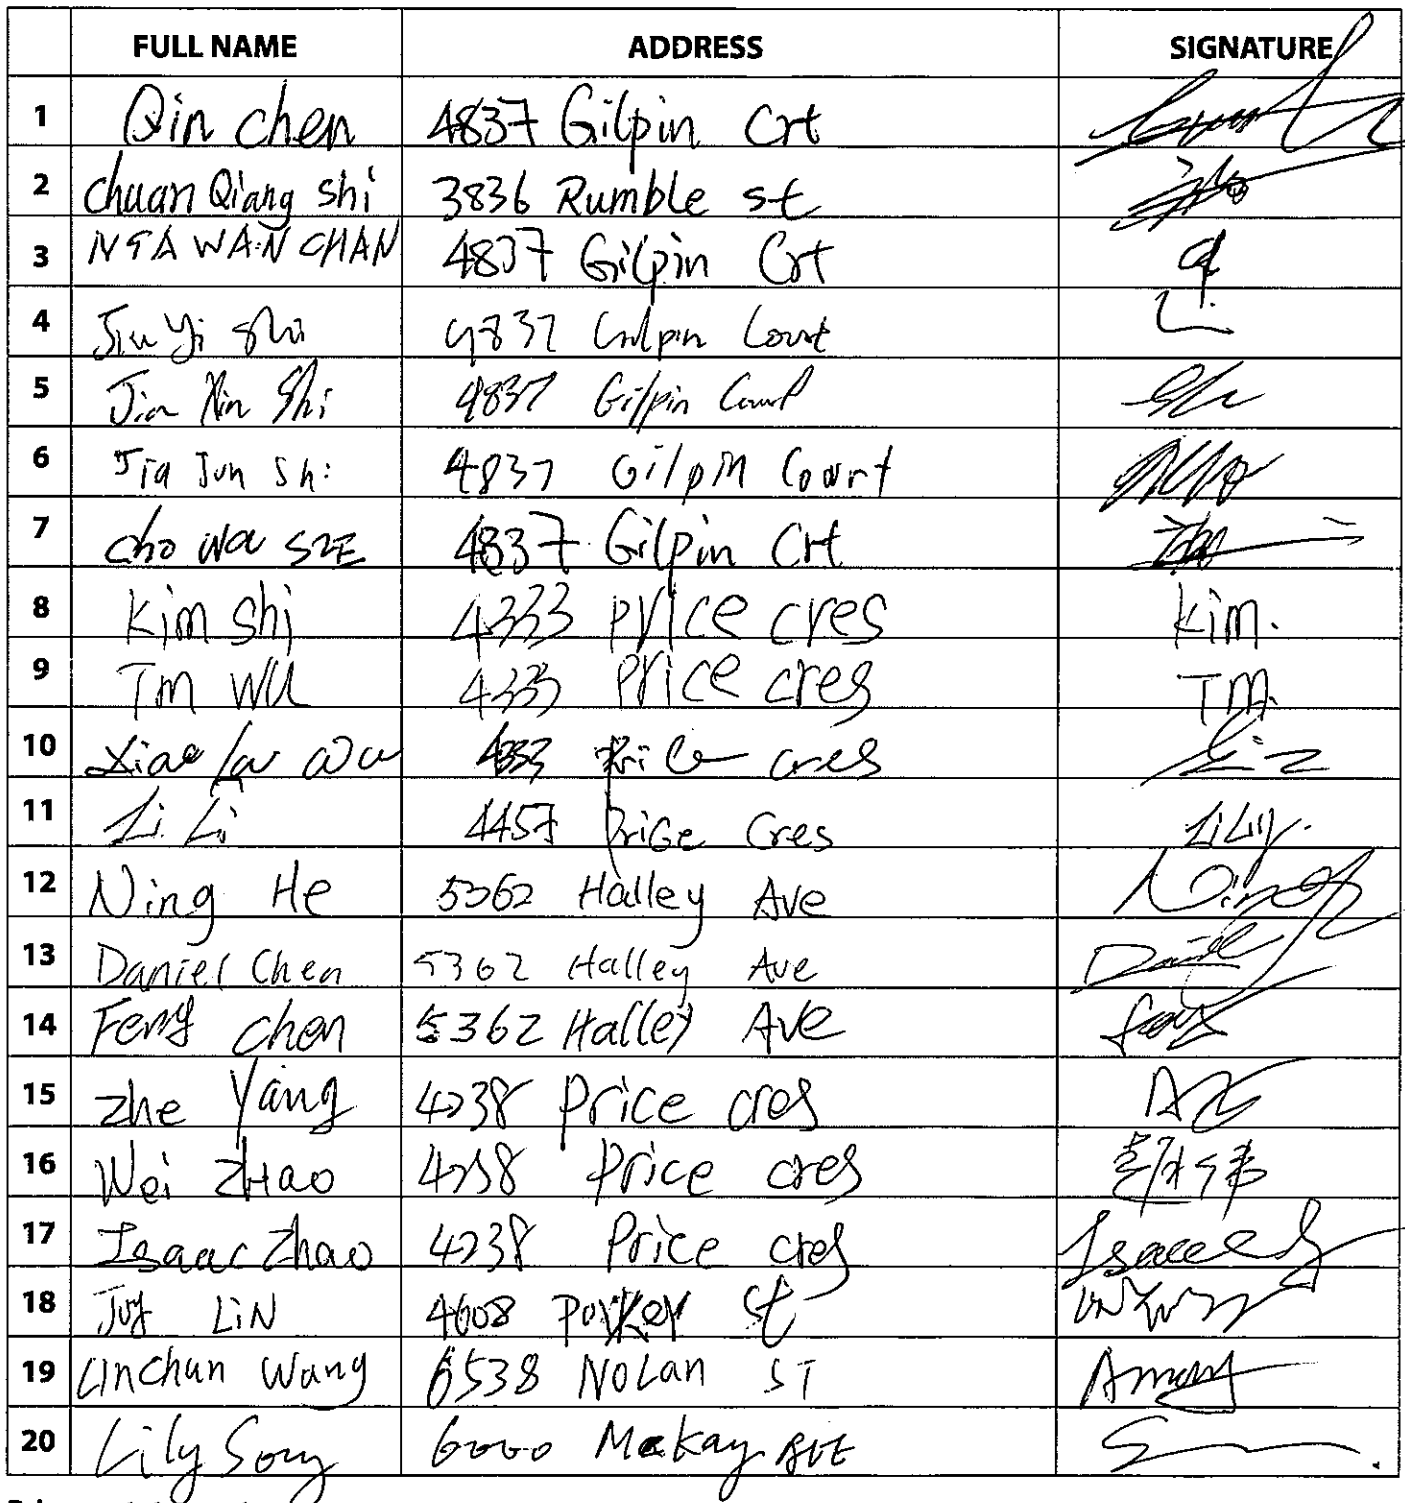 FULL NAME ADDRESS SIGNATURE
1 Qin chen 4837 Gilpin Crt
2 chuan Qiang shi 3836 Rumble st
3 NGA WAN CHAN 4837 Gilpin Crt
4 Jia Yi Shi 4837 Gilpin Court
5 Jia Xin Shi 4837 Gilpin Court
6 Jia Jun Shi 4837 Gilpin Court
7 cho wa SZE 4837 Gilpin Crt
8 Kim Shi 4333 price cres Kim.
9 Tm WU 4333 price cres TM.
10 4333 Price cres
11 Li Li 4457 Price Cres Lily.
12 Ning He 5362 Halley Ave Ning
13 Daniel Chen 5362 Halley Ave Daniel
14 Feng chen 5362 Halley Ave
15 zhe Yang 4238 price cres
16 Wei ZHao 4238 Price cres 赵伟
17 Isaac Zhao 4238 Price cres Isaac
18 Joy LiN 4608 Parker St
19 Linchun Wang 6538 NoLan ST
20 Lily Song 6000 Mckay AVE